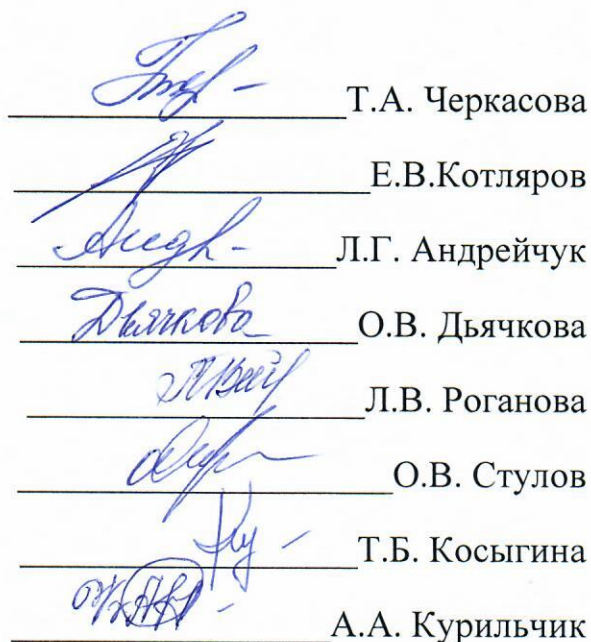 Т.А. Черкасова
Е.В.Котляров
Л.Г. Андрейчук
Дьячкова О.В. Дьячкова
Л.В. Роганова
О.В. Стулов
Т.Б. Косыгина
А.А. Курильчик